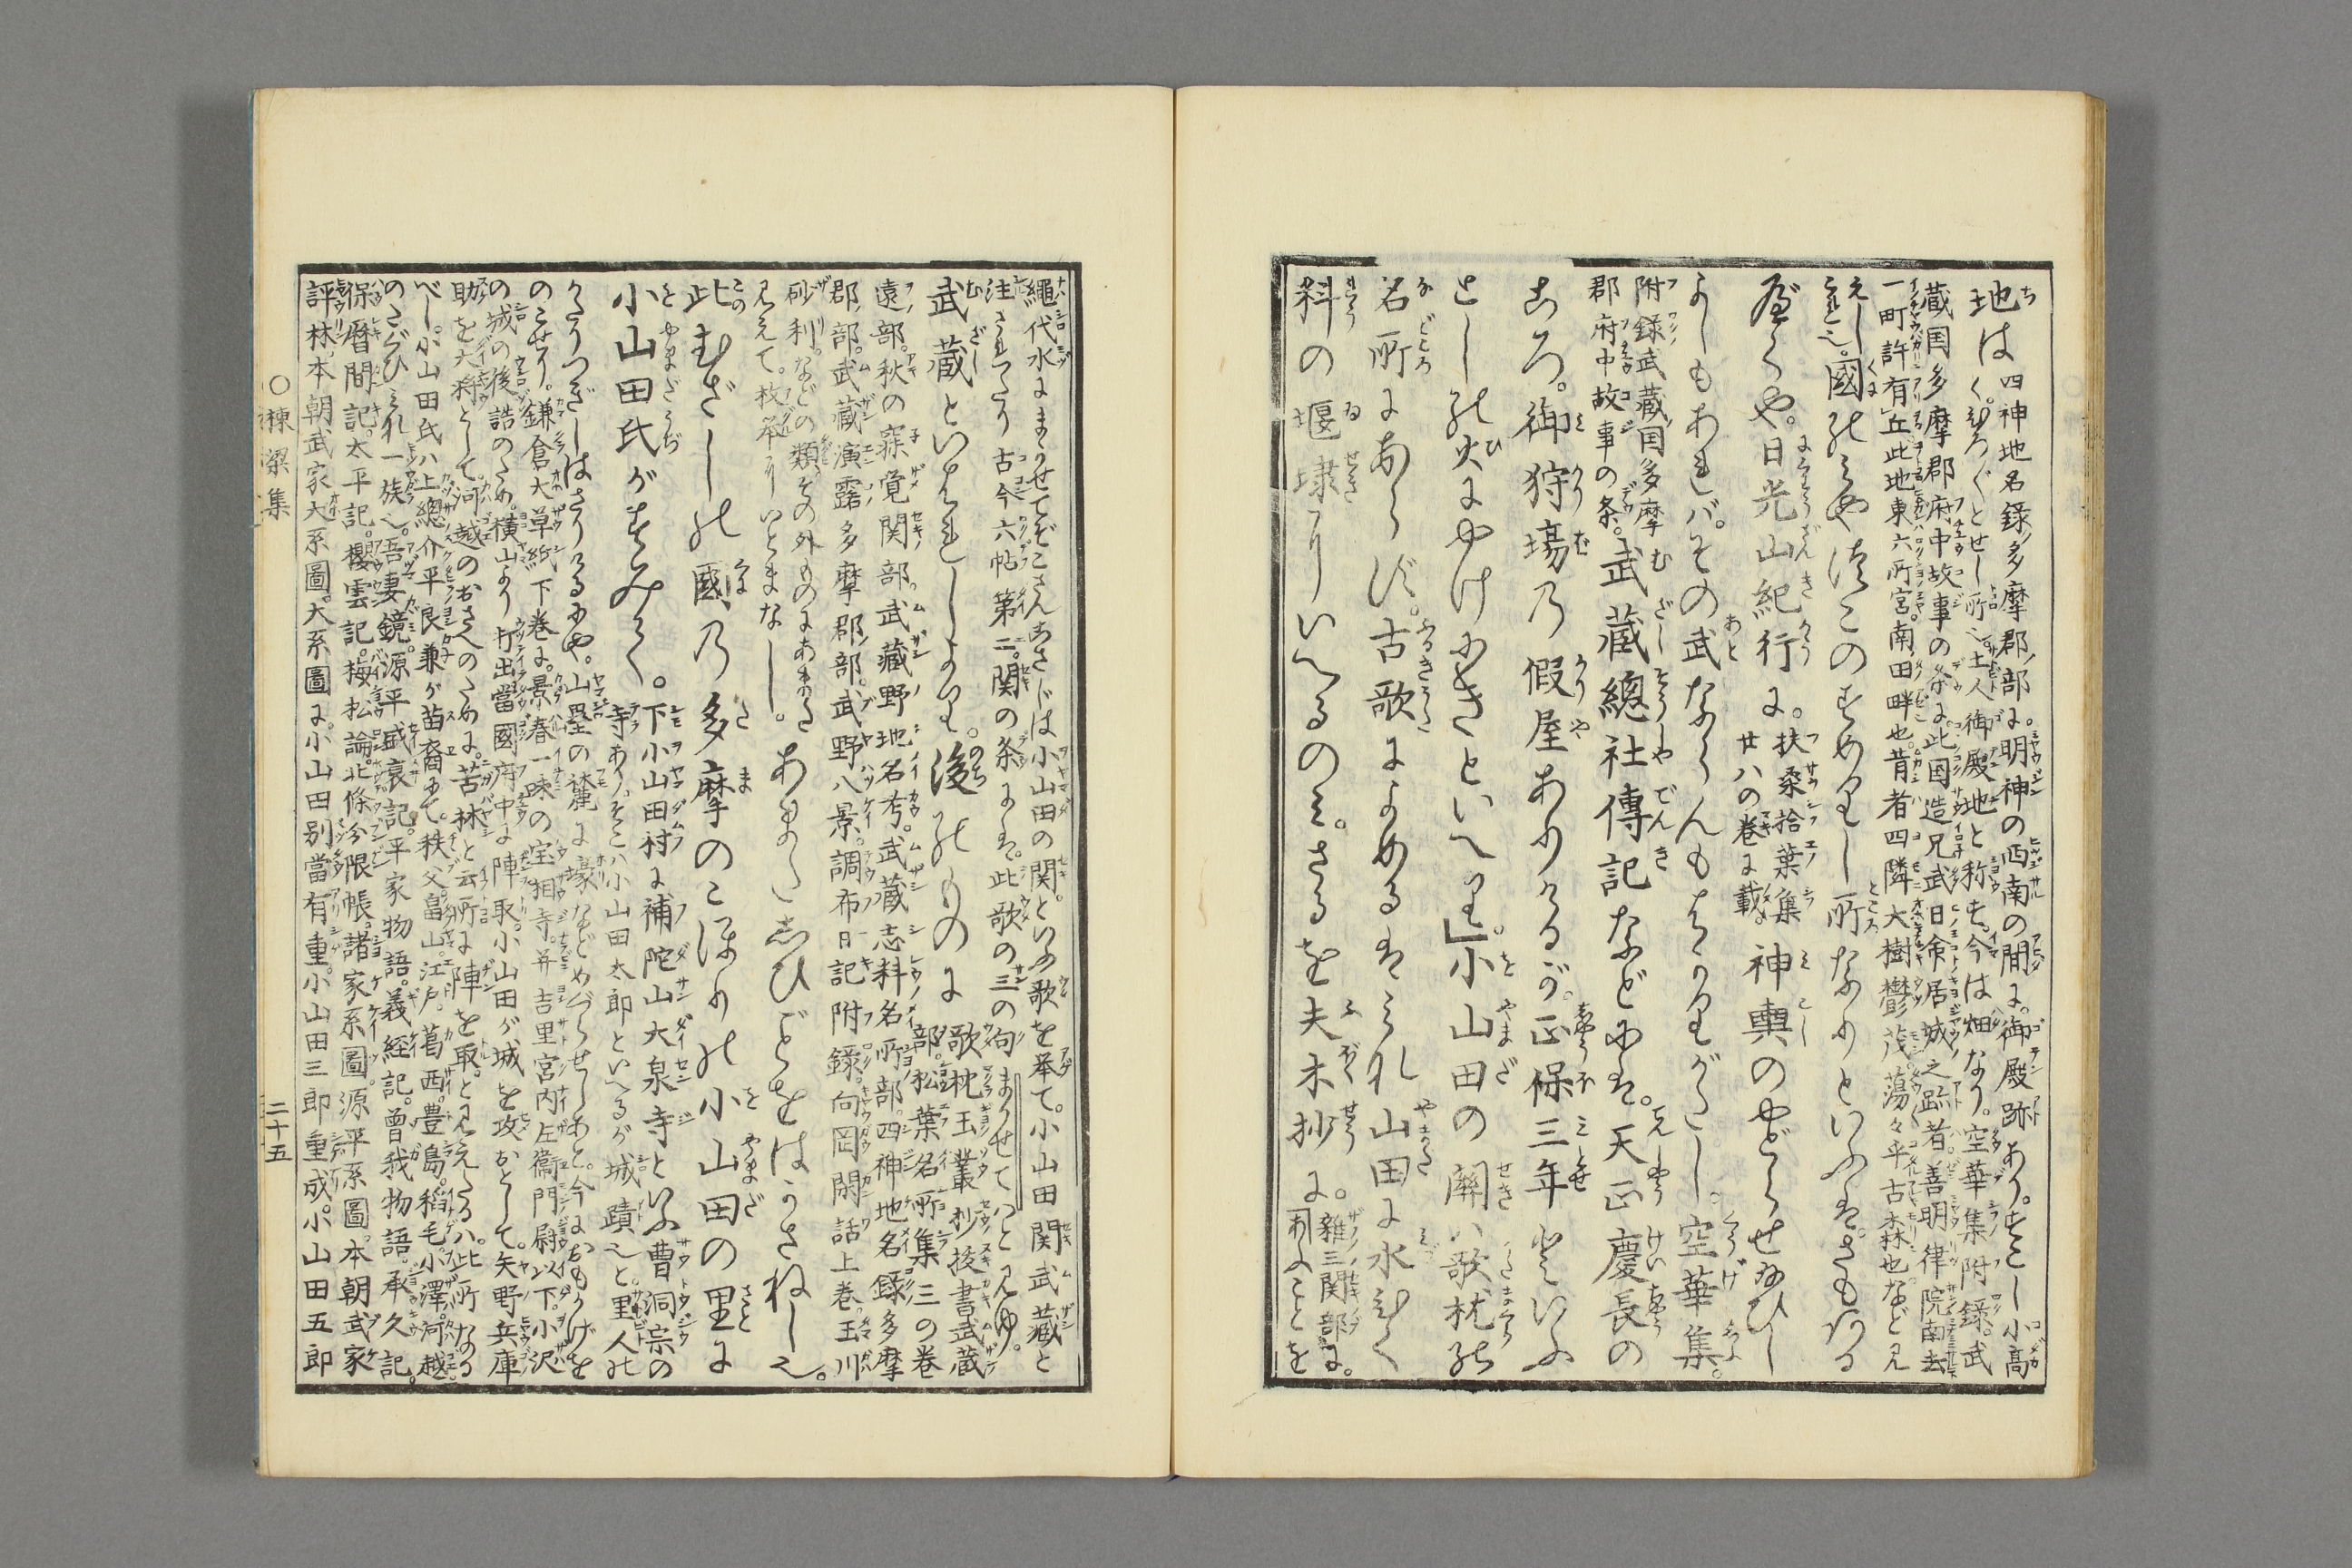 地は 四神地名録多摩郡ノ部に。明神の西南の間に。御殿跡あり。すこし小高
くひろ〴〵とせし所也。土人御殿地と称す。今は畑なり。空華集附録。武
蔵国多摩郡府中故事の条に。此国造兄武日命居城之跡者。善明律院南去
一町許有丘。此地東六所宮。南田畔也。昔者四隣大樹鬱茂。蕩々平古森也など見
えし
これ也。國のみやつこのすめりし所なりといふは。さもある
べくや。日光山紀行に。扶桑拾葉集
廿八の巻に載。神輿のやどらせ給ひし
よしもあれバ。その武ならんもはかりがたし。空華集。
附録武蔵国多摩
郡府中故事の条。武蔵總社傳記などには。天正慶長の
ころ。御狩場乃假屋ありけるが。正保三年といふ
としの火にやけにきといへり」。小山田の關ハ歌枕の
名所にあらず。古歌によめるはみな山田に水ひく
料の堰埭をいへるのみ。さるを夫木抄に。雑三関部に。

繩代水にまかせてぞこさんあさじは小山田の関。といふ歌を挙て。小山田関武蔵と
注されたり 古今六帖第二。関の条には。此歌の三の句まかせてとと見ゆ。
武蔵といはれしより。後のものに 歌枕玉叢抄後書武蔵
部。松葉名所集三の巻
遠部。秋の寐覚関部。武蔵野地名考。武蔵志料名所部。四神地名録多摩
郡部。武蔵演露多摩郡部。武野八景。調布日記附録。向岡閑話上巻。玉川
砂利。などの類。その外ものにあまた
見えて。枚挙にいとまなし。あまたしひごとをはかさねし也。
此むざしの國乃多摩のこほりの小山田の里に
小山田氏がすみて。下小山田村に補陀山大泉寺といふ曹洞宗の
寺あり。そこハ小山田太郎といへるが城蹟也と。里人の
かたりつぎしはさりけるにや。山塁の麓に壕などめぐらせしあと。今におもかげを
のこせり。鎌倉大草紙下巻に。景春一味の宝相寺。并吉里宮内左衞門尉以下。小沢
の城の後詰のため。横山より打出。當國府中に陣取。小山田が城を攻おとして。矢野兵庫
助を大将として。河越のおさへのために。苦林と云所に陣を取。と見えたるハ。此所なる
べし。小山田氏ハ上總介平良兼が苗裔にて。秩父。畠山。江戸。葛西。豊島。稲毛。小澤。河越
のたぐひみな一族也。吾妻鏡。源平盛衰記。平家物語。義経記。曾我物語。承久記。
保暦間記。太平記。櫻雲記。梅松論。北條分限帳。諸家系圖。源平系圖。本朝武家
評林。本朝武家大系圖。大系圖に。小山田別當有重。小山田三郎重成。小山田五郎
〇棟梁集 二十五